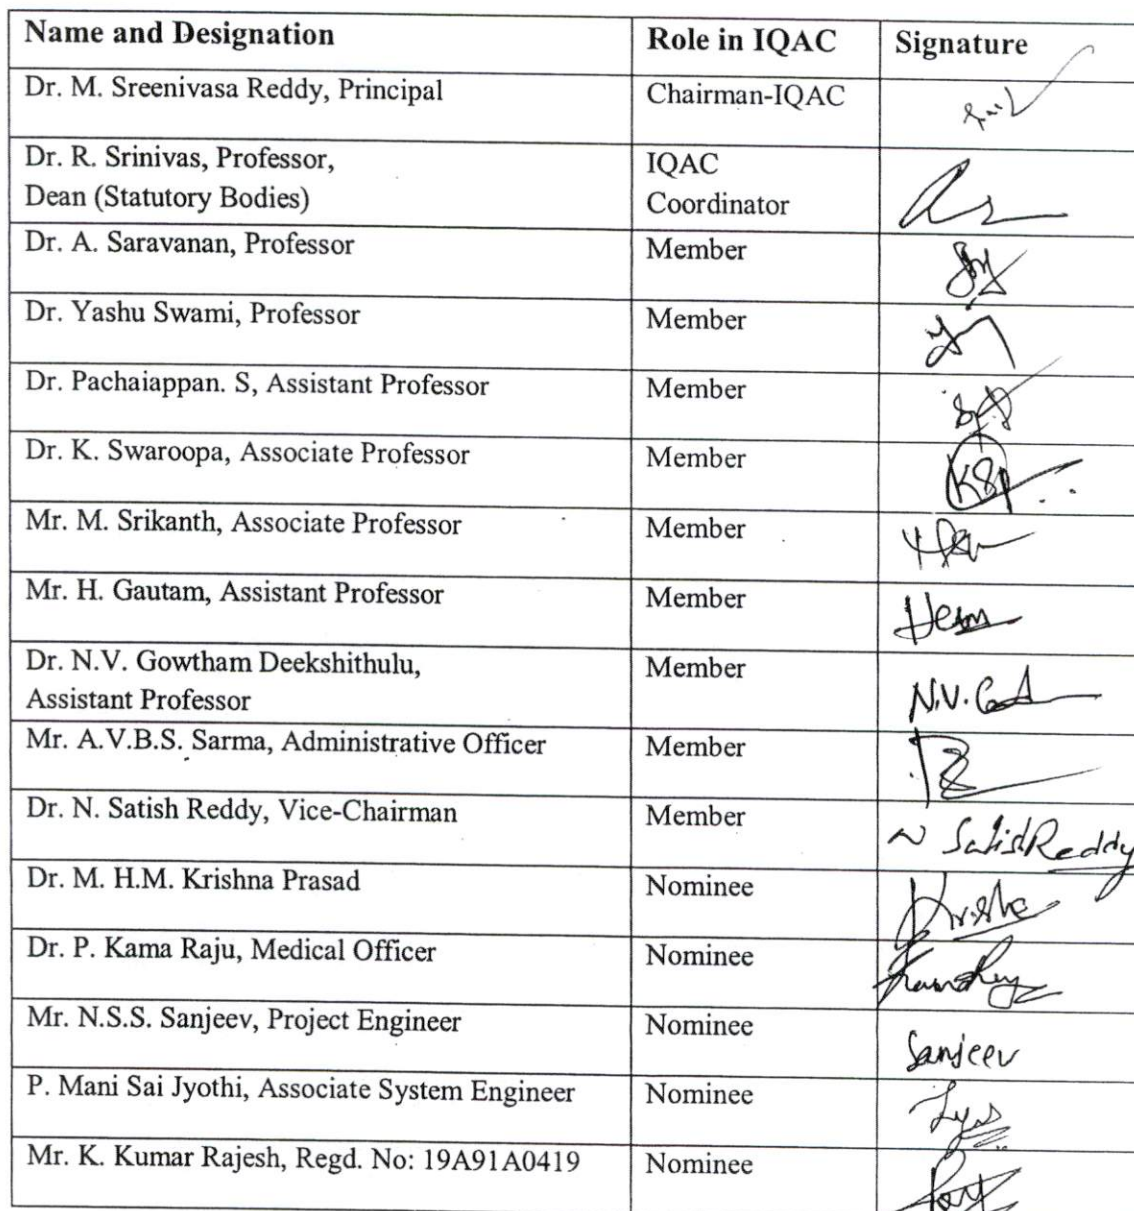 Name and Designation Role in IQAC Signature
Dr. M. Sreenivasa Reddy, Principal Chairman-IQAC
Dr. R. Srinivas, Professor, IQAC
Dean (Statutory Bodies) Coordinator
Dr. A. Saravanan, Professor Member
Dr. Yashu Swami, Professor Member
Dr. Pachaiappan. S, Assistant Professor Member
Dr. K. Swaroopa, Associate Professor Member
Mr. M. Srikanth, Associate Professor Member
Mr. H. Gautam, Assistant Professor Member
Dr. N.V. Gowtham Deekshithulu, Member
Assistant Professor N.V.
Mr. A.V.B.S. Sarma, Administrative Officer Member
Dr. N. Satish Reddy, Vice-Chairman Member N SatishReddy
Dr. M. H.M. Krishna Prasad Nominee
Dr. P. Kama Raju, Medical Officer Nominee
Mr. N.S.S. Sanjeev, Project Engineer Nominee Sanjeev
P. Mani Sai Jyothi, Associate System Engineer Nominee
Mr. K. Kumar Rajesh, Regd. No: 19A91A0419 Nominee